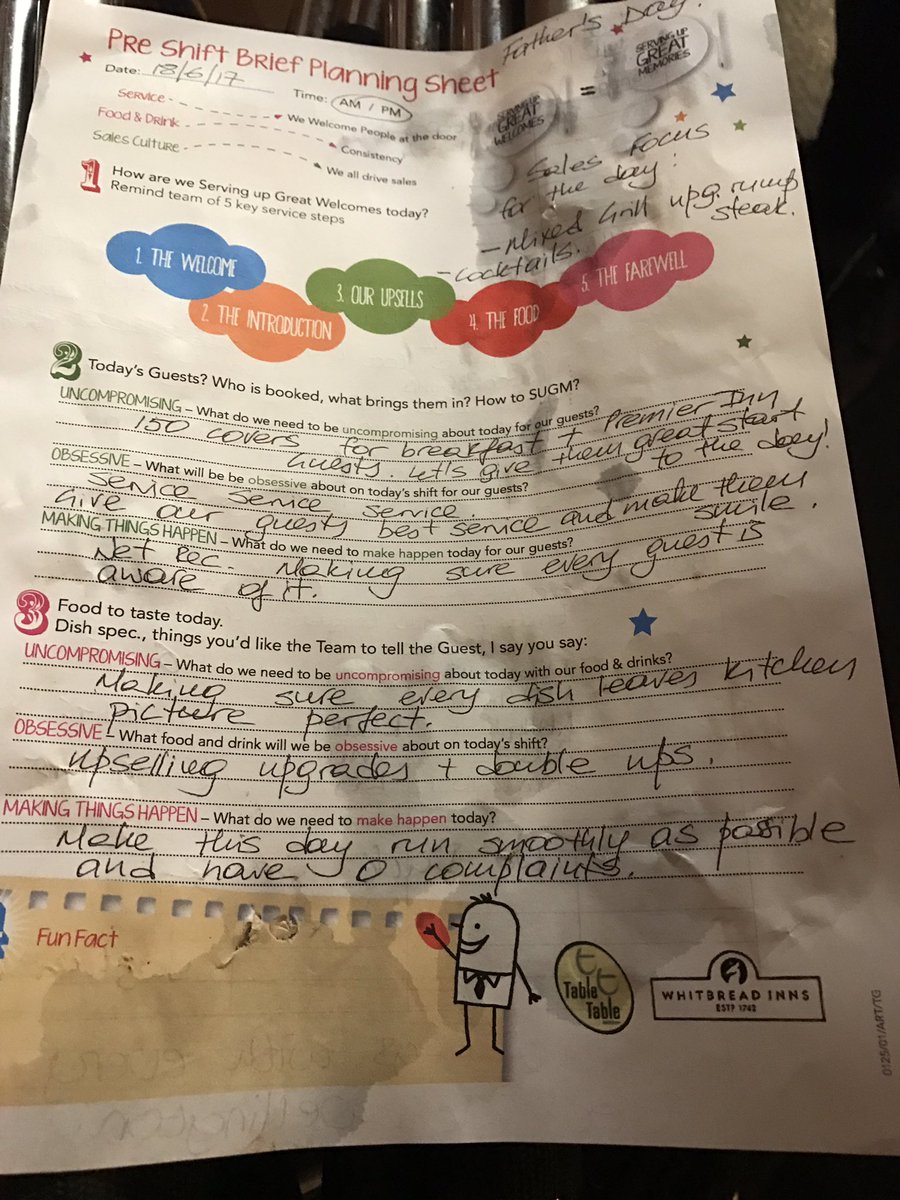 Father's Day.
Pre Shift Brief Planning Sheet
SERVING UP GREAT WELCOMES
=
SERVING UP GREAT MEMORIES
Date: 18/6/17
Time: AM / PM
Service
We Welcome People at the door
Food & Drink
Consistency
Sales Culture
We all drive sales
Sales Focus
for the day:
- Mixed Grill upg. rump
steak.
- Cocktails.
1 How are we Serving up Great Welcomes today?
Remind team of 5 key service steps
1. THE WELCOME
2. THE INTRODUCTION
3. OUR UPSELLS
4. THE FOOD
5. THE FAREWELL
2 Today's Guests? Who is booked, what brings them in? How to SUGM?
UNCOMPROMISING – What do we need to be uncompromising about today for our guests?
150 covers for breakfast + Premier Inn
Guests. Let's give them great start
to the day!
OBSESSIVE – What will be be obsessive about on today's shift for our guests?
Service Service Service.
Give our guests best service and make them
smile.
MAKING THINGS HAPPEN – What do we need to make happen today for our guests?
Net Rec. Making sure every guest is
aware of it.
3 Food to taste today.
Dish spec., things you'd like the Team to tell the Guest, I say you say:
UNCOMPROMISING – What do we need to be uncompromising about today with our food & drinks?
Making sure every dish leaves kitchen
picture perfect.
OBSESSIVE – What food and drink will we be obsessive about on today's shift?
Upselling upgrades + double ups.
MAKING THINGS HAPPEN – What do we need to make happen today?
Make this day run smoothly as possible
and have 0 complaints.
4 Fun Fact
Table Table
WHITBREAD INNS
ESTD 1742
0125/01/ART/TG